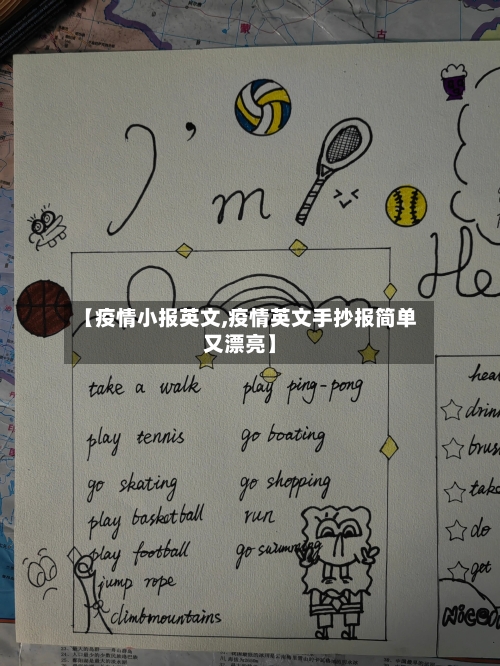 I'm
He
【疫情小报英文,疫情英文手抄报简单
又漂亮】
take a walk play ping-pong
play tennis go boating
go skating go shopping
play basketball run
play football go swimming
jump rope
climb mountains
hea
drin
brus
take
do
get
Nicen